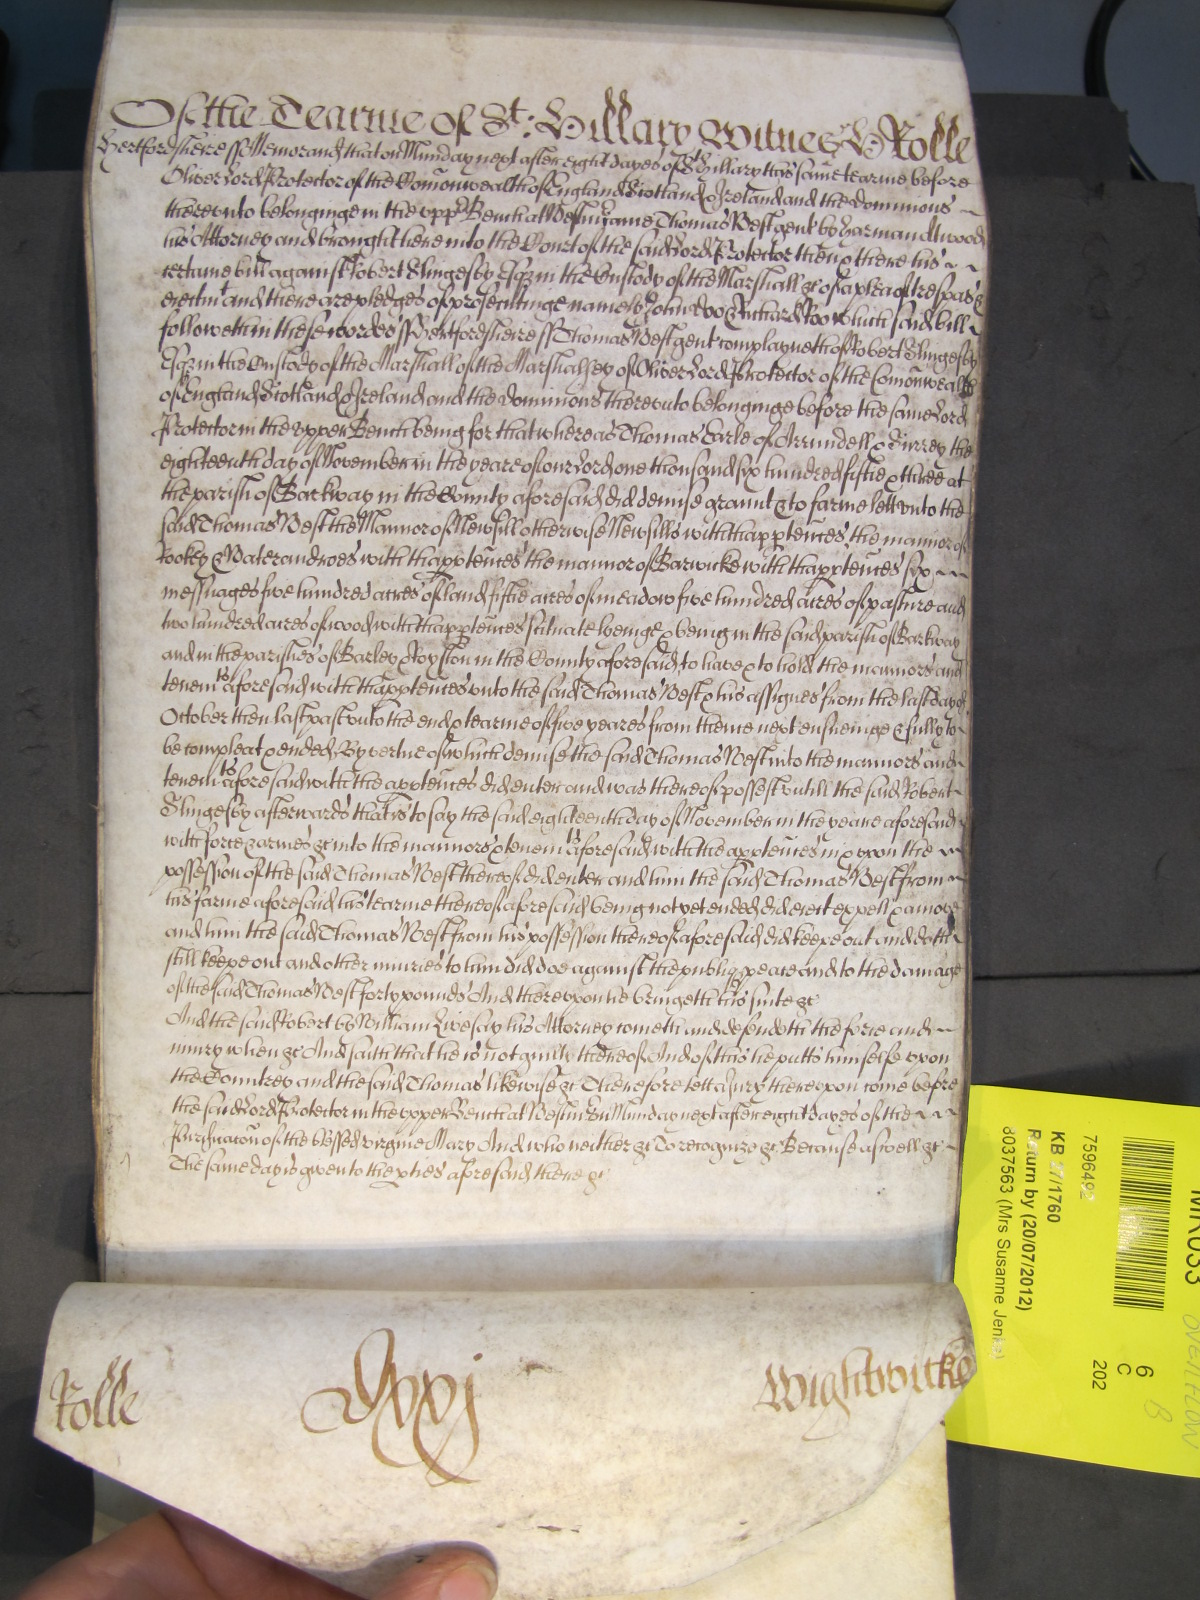 Of the Tearme of St: Hillary Witnes H Rolle
Hertfordsheire ss Memorand that on Munday next after eight dayes of St Hillary this same tearme before
Oliver Lord Protector of the Comonwealth of England Scotland & Ireland and the Dominions
thereunto belonginge in the upp Bench at Westm came Thomas West gent by Harman Atwood
his Attorney and brought here into the Court of the said Lord Protector then & there his
certaine bill against Robert Slingesby Esqz in the Custody of the Marshall &c of a plea of trespas &
eiectmt and there are pledges of prosecutinge namely John Doo & Richard Roo which said bill
followeth in these wordes ss Hertfordsheire ss Thomas West gent complayneth of Robert Slingesby
Esqz in the Custody of the Marshall of the Marshalsey of Oliver Lord Protector of the Comonwealth
of England Scotland & Ireland and the Dominions thereunto belonginge before the same Lord
Protector in the upper Bench being for that whereas Thomas Earle of Arrundell & Surrey the
eighteenth day of November in the yeare of our Lord one thousand six hundred fiftie & three at
the parish of Barkway in the County aforesaid did demise graunt & to farme lett unto the
said Thomas West the Mannor of Newsill otherwise Newsills with thapptences the mannor of
Rokey & Waterandroes with thapptences the mannor of Barwicke with thapptences six
messuages five hundred acres of land fiftie acres of meadow five hundred acres of pasture and
two hundred acres of wood with thapptences scituate lyeinge & being in the said parish of Barkway
and in the parishes of Barley & Royston in the County aforesaid to have & to hold the mannors and
tenemts aforesaid with thapptences unto the said Thomas West & his assignes from the last day of
October then last past unto the end & tearme of five yeares from thence next ensueinge & fully to
be compleat & ended By vertue of which demise the said Thomas West into the mannors and
tenemts aforesaid with the apptences did enter and was thereof possest untill the said Robert
Slingesby afterwards that is to say the said eighteenth day of November in the yeare aforesaid
with force & armes &c into the mannors & tenemts aforesaid with the apptences in & upon the
possession of the said Thomas West thereof did enter and him the said Thomas West from
his farme aforesaid his tearme thereof aforesaid being not yet ended did eiect expell & amove
and him the said Thomas West from his possession thereof aforesaid did keepe out and doth
still keepe out and other iniuries to him did doe against the publiq peace and to the damage
of the said Thomas West forty pounds And thereupon he bringeth his suite &c
And the said Robert by William Livesay his Attorney cometh and defendeth the force and
iniury when &c And saith that he is not guilty thereof And of this he putts himselfe upon
the Countrey and the said Thomas likewise &c Therefore lett a Jury thereupon come before
the said Lord Protector in the upper Bench at Westm on Munday next after eight dayes of the
Purificacon of the blessed virgine Mary And who neither &c To recognize &c Because aswell &c
The same day is given to the pties aforesaid there &c
Rolle Dxxj Wightwicke
MR033
OVERFLOW
B
6
C
202
7596492
KB 27/1760
Return by (20/07/2012)
8037563 (Mrs Susanne Jenks)